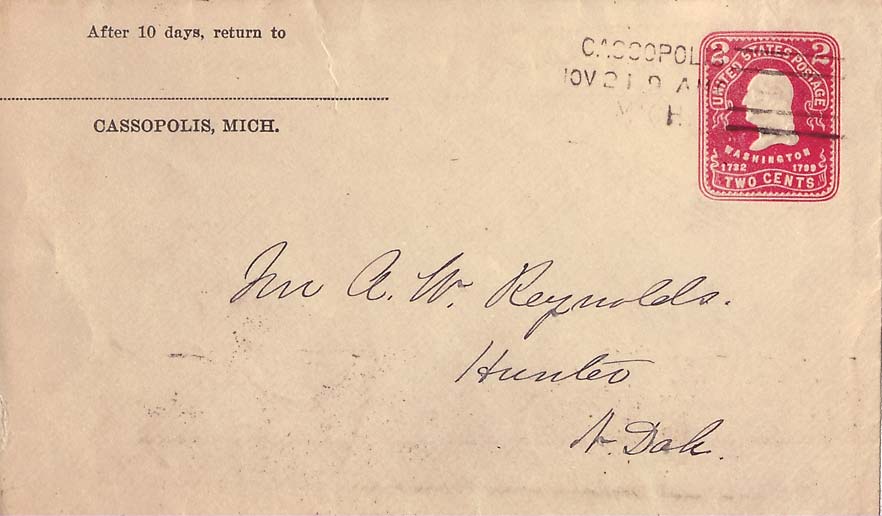 After 10 days, return to
CASSOPOLIS, MICH.
CASSOPOLIS
NOV 21 9 AM
MICH.
2 2
UNITED STATES POSTAGE
WASHINGTON
1732 1799
TWO CENTS
Mr A. W. Reynolds.
Hunter
N. Dak.